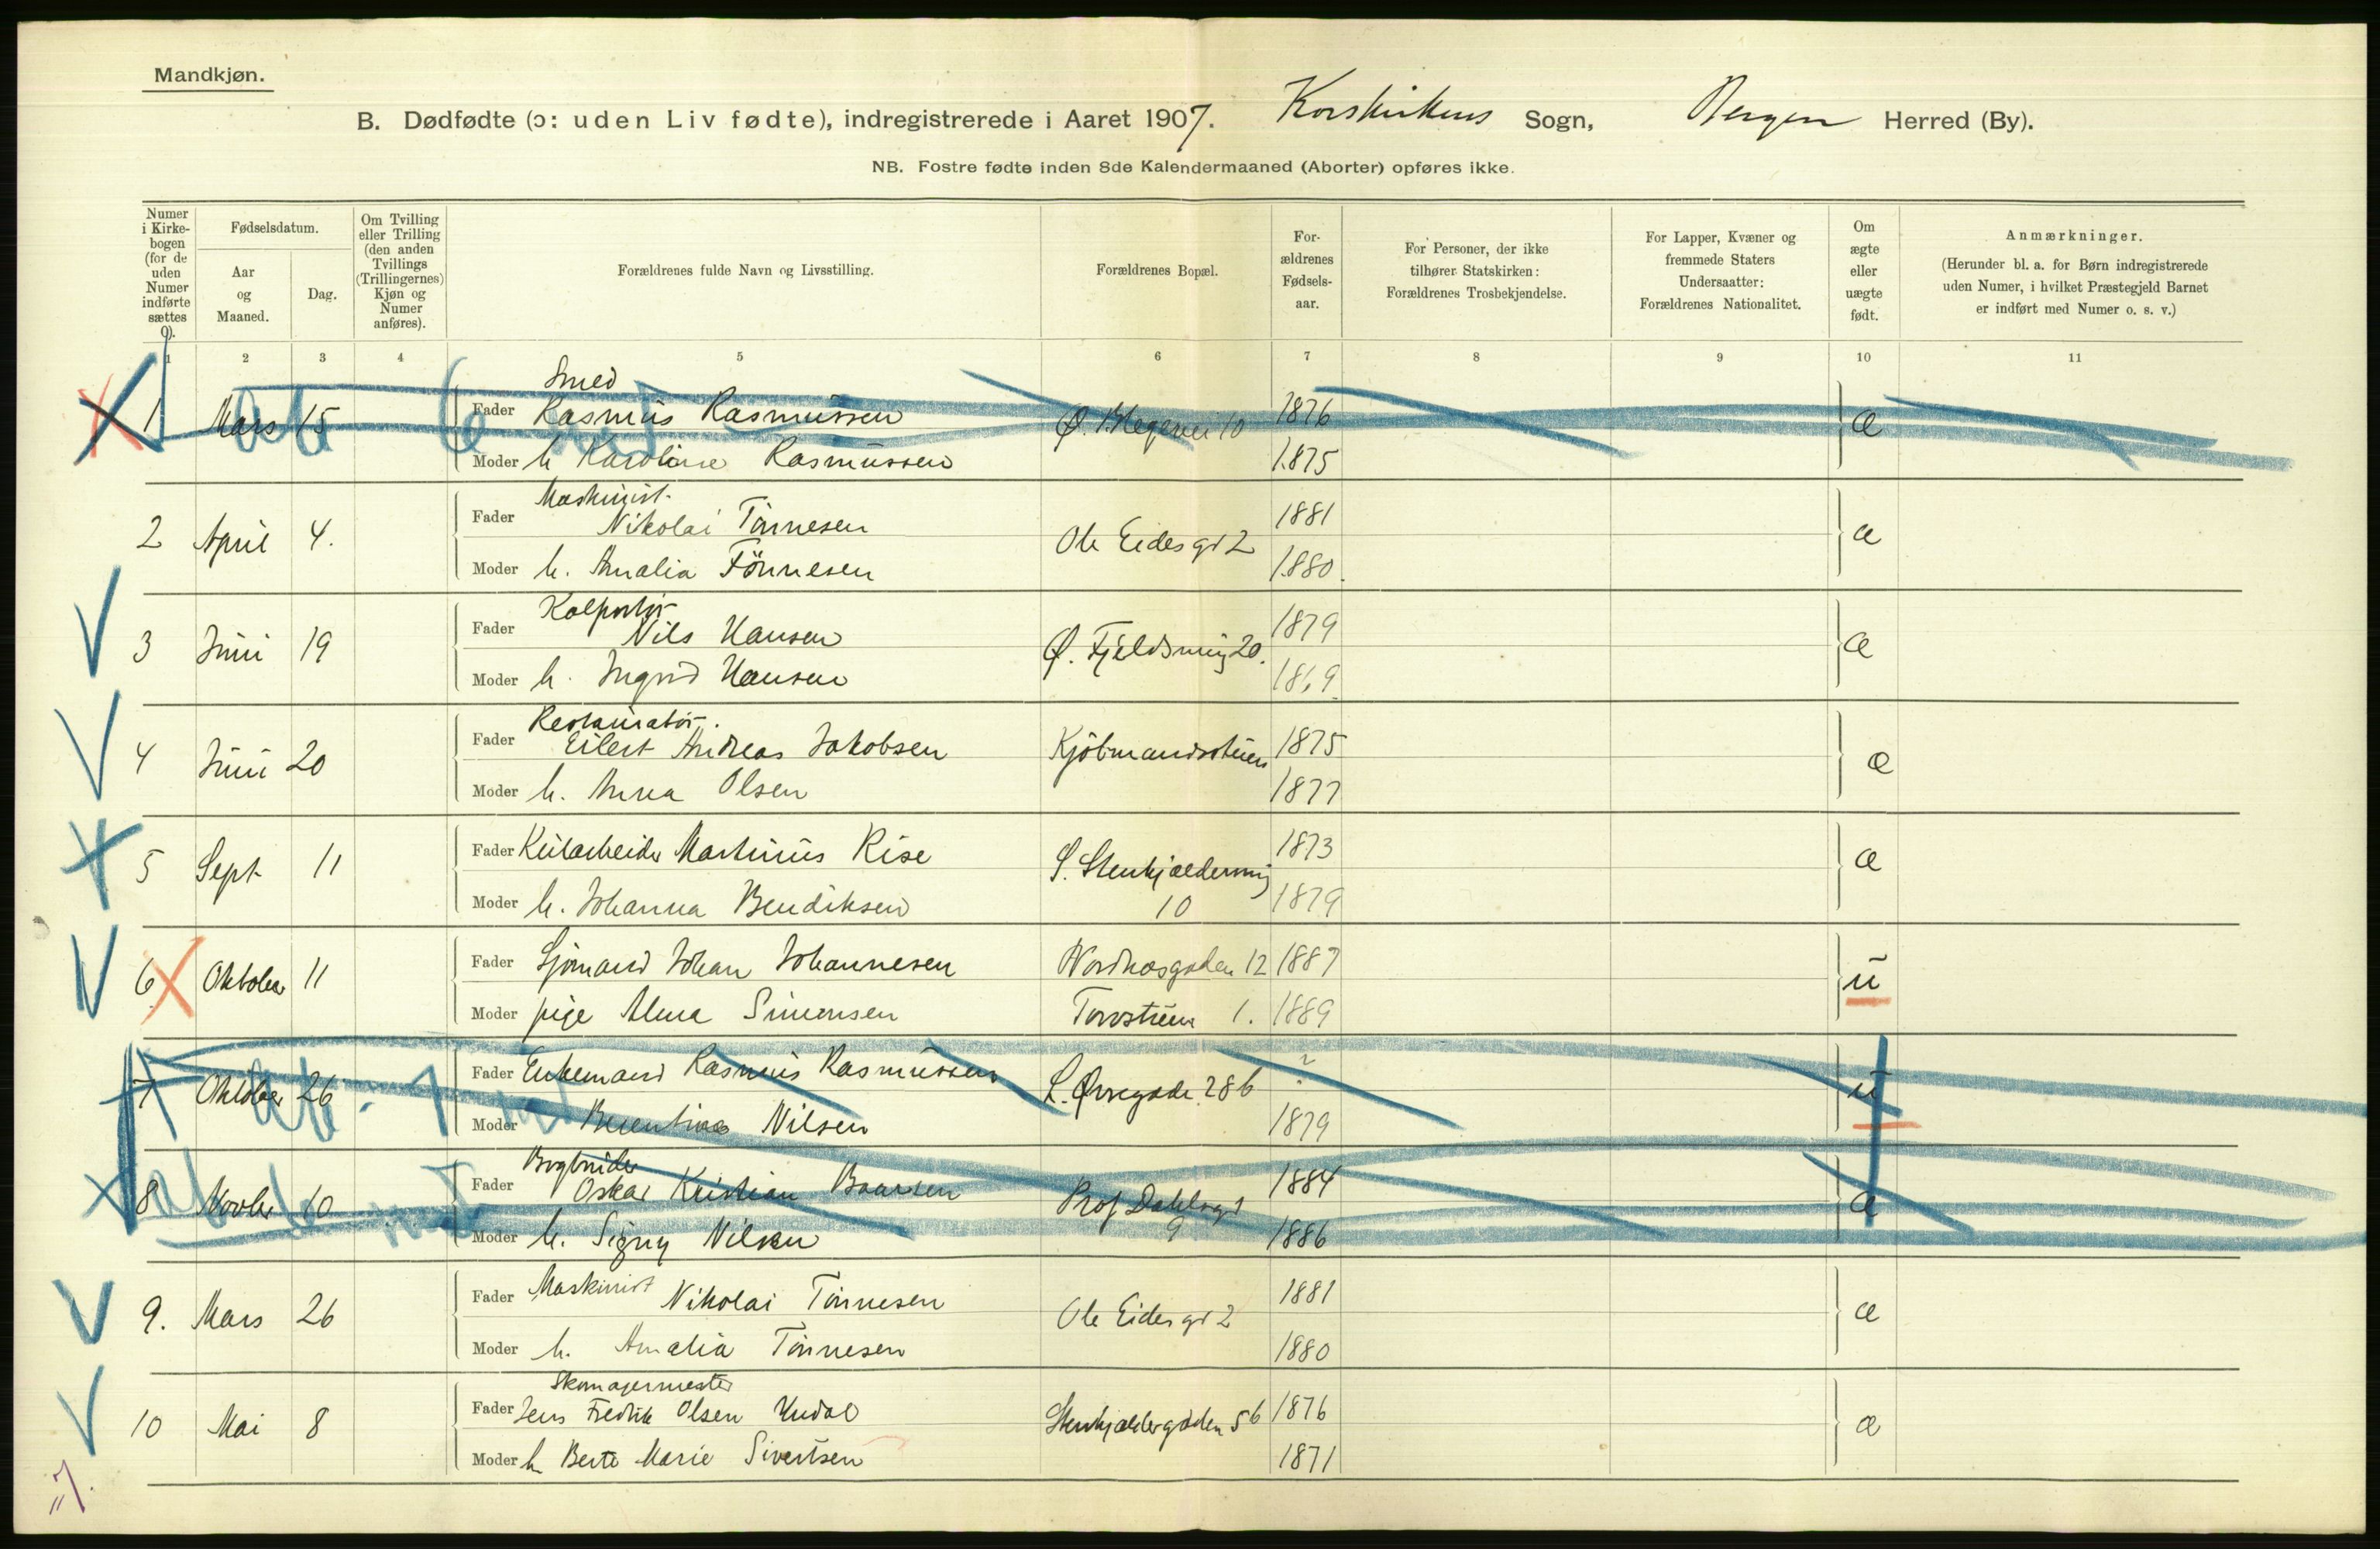 Mandkjøn.
B. Dødfødte (ɔ: uden Liv fødte), indregistrerede i Aaret 1907. Korskirkens Sogn, Bergen Herred (By).
NB. Fostre fødte inden 8de Kalendermaaned (Aborter) opføres ikke.
Numer i Kirkebogen (for de uden Numer indførte sættes 0).
Fødselsdatum.
Aar og Maaned.
Dag.
Om Tvilling eller Trilling (den anden Tvillings (Trillingernes) Kjøn og Numer anføres).
Forældrenes fulde Navn og Livsstilling.
Forældrenes Bopæl.
Forældrenes Fødselsaar.
For Personer, der ikke tilhører Statskirken: Forældrenes Trosbekjendelse.
For Lapper, Kvæner og fremmede Staters Undersaatter: Forældrenes Nationalitet.
Om ægte eller uægte født.
Anmærkninger.
(Herunder bl. a. for Børn indregistrerede uden Numer, i hvilket Præstegjeld Barnet er indført med Numer o. s. v.)
1 2 3 4 5 6 7 8 9 10 11
Smed
1 Mars 15 Fader Rasmus Rasmussen Ø. Blegevei 10 1876 æ
Moder h Karoline Rasmussen 1875
Maskinist.
2 April 4. Fader Nikolai Tönnesen Ole Eides gt 2 1881 æ
Moder h. Amalia Tönnesen 1880.
Kolportør
3 Juni 19 Fader Nils Hansen Ø. Fjeldsmug 20. 1879 æ
Moder h. Ingrid Hansen
Restauratør.
4 Juni 20 Fader Eilert Andreas Jakobsen Kjöbmandssteuen 1875 æ
Moder h. Anna Olsen 1877
5 Sept 11 Fader Martinus Rise S. Stenkjældersmug 1873 æ
Moder h. Johanna Bendiksen 10 1879
6 Oktober 11 Fader Sjömand Johan Johannesen Nordnæsgaden 12 1887 u
Moder pige Alma Simonsen 1. 1889
7 Oktober 26 Fader Enkemand Rasmus Rasmussen L. Øvregade 28b ? u
Moder Berentine Nilsen 1879
Bogbinder
8 Novbr 10 Fader Oskar Kristian Baarsen Prof Dahlsgt 1884 æ
Moder h. Signy Nilsen 9 1886
9. Mars 26 Fader Maskinist Nikolai Tönnesen Ole Eides gt 2 1881 æ
Moder h. Amalia Tönnesen 1880
Skomagermester
10 Mai 8 Fader Jens Fredrik Olsen Undal Stenkjældergaden 5b 1876 æ
Moder h Berte Marie Sivertsen 1871